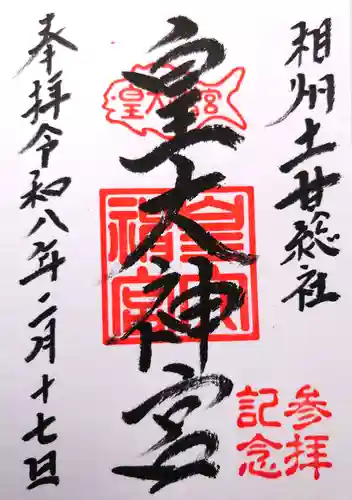 相州土甘総社
皇大神宮
皇大神宮
奉拝令和八年二月十七日
参拝
記念